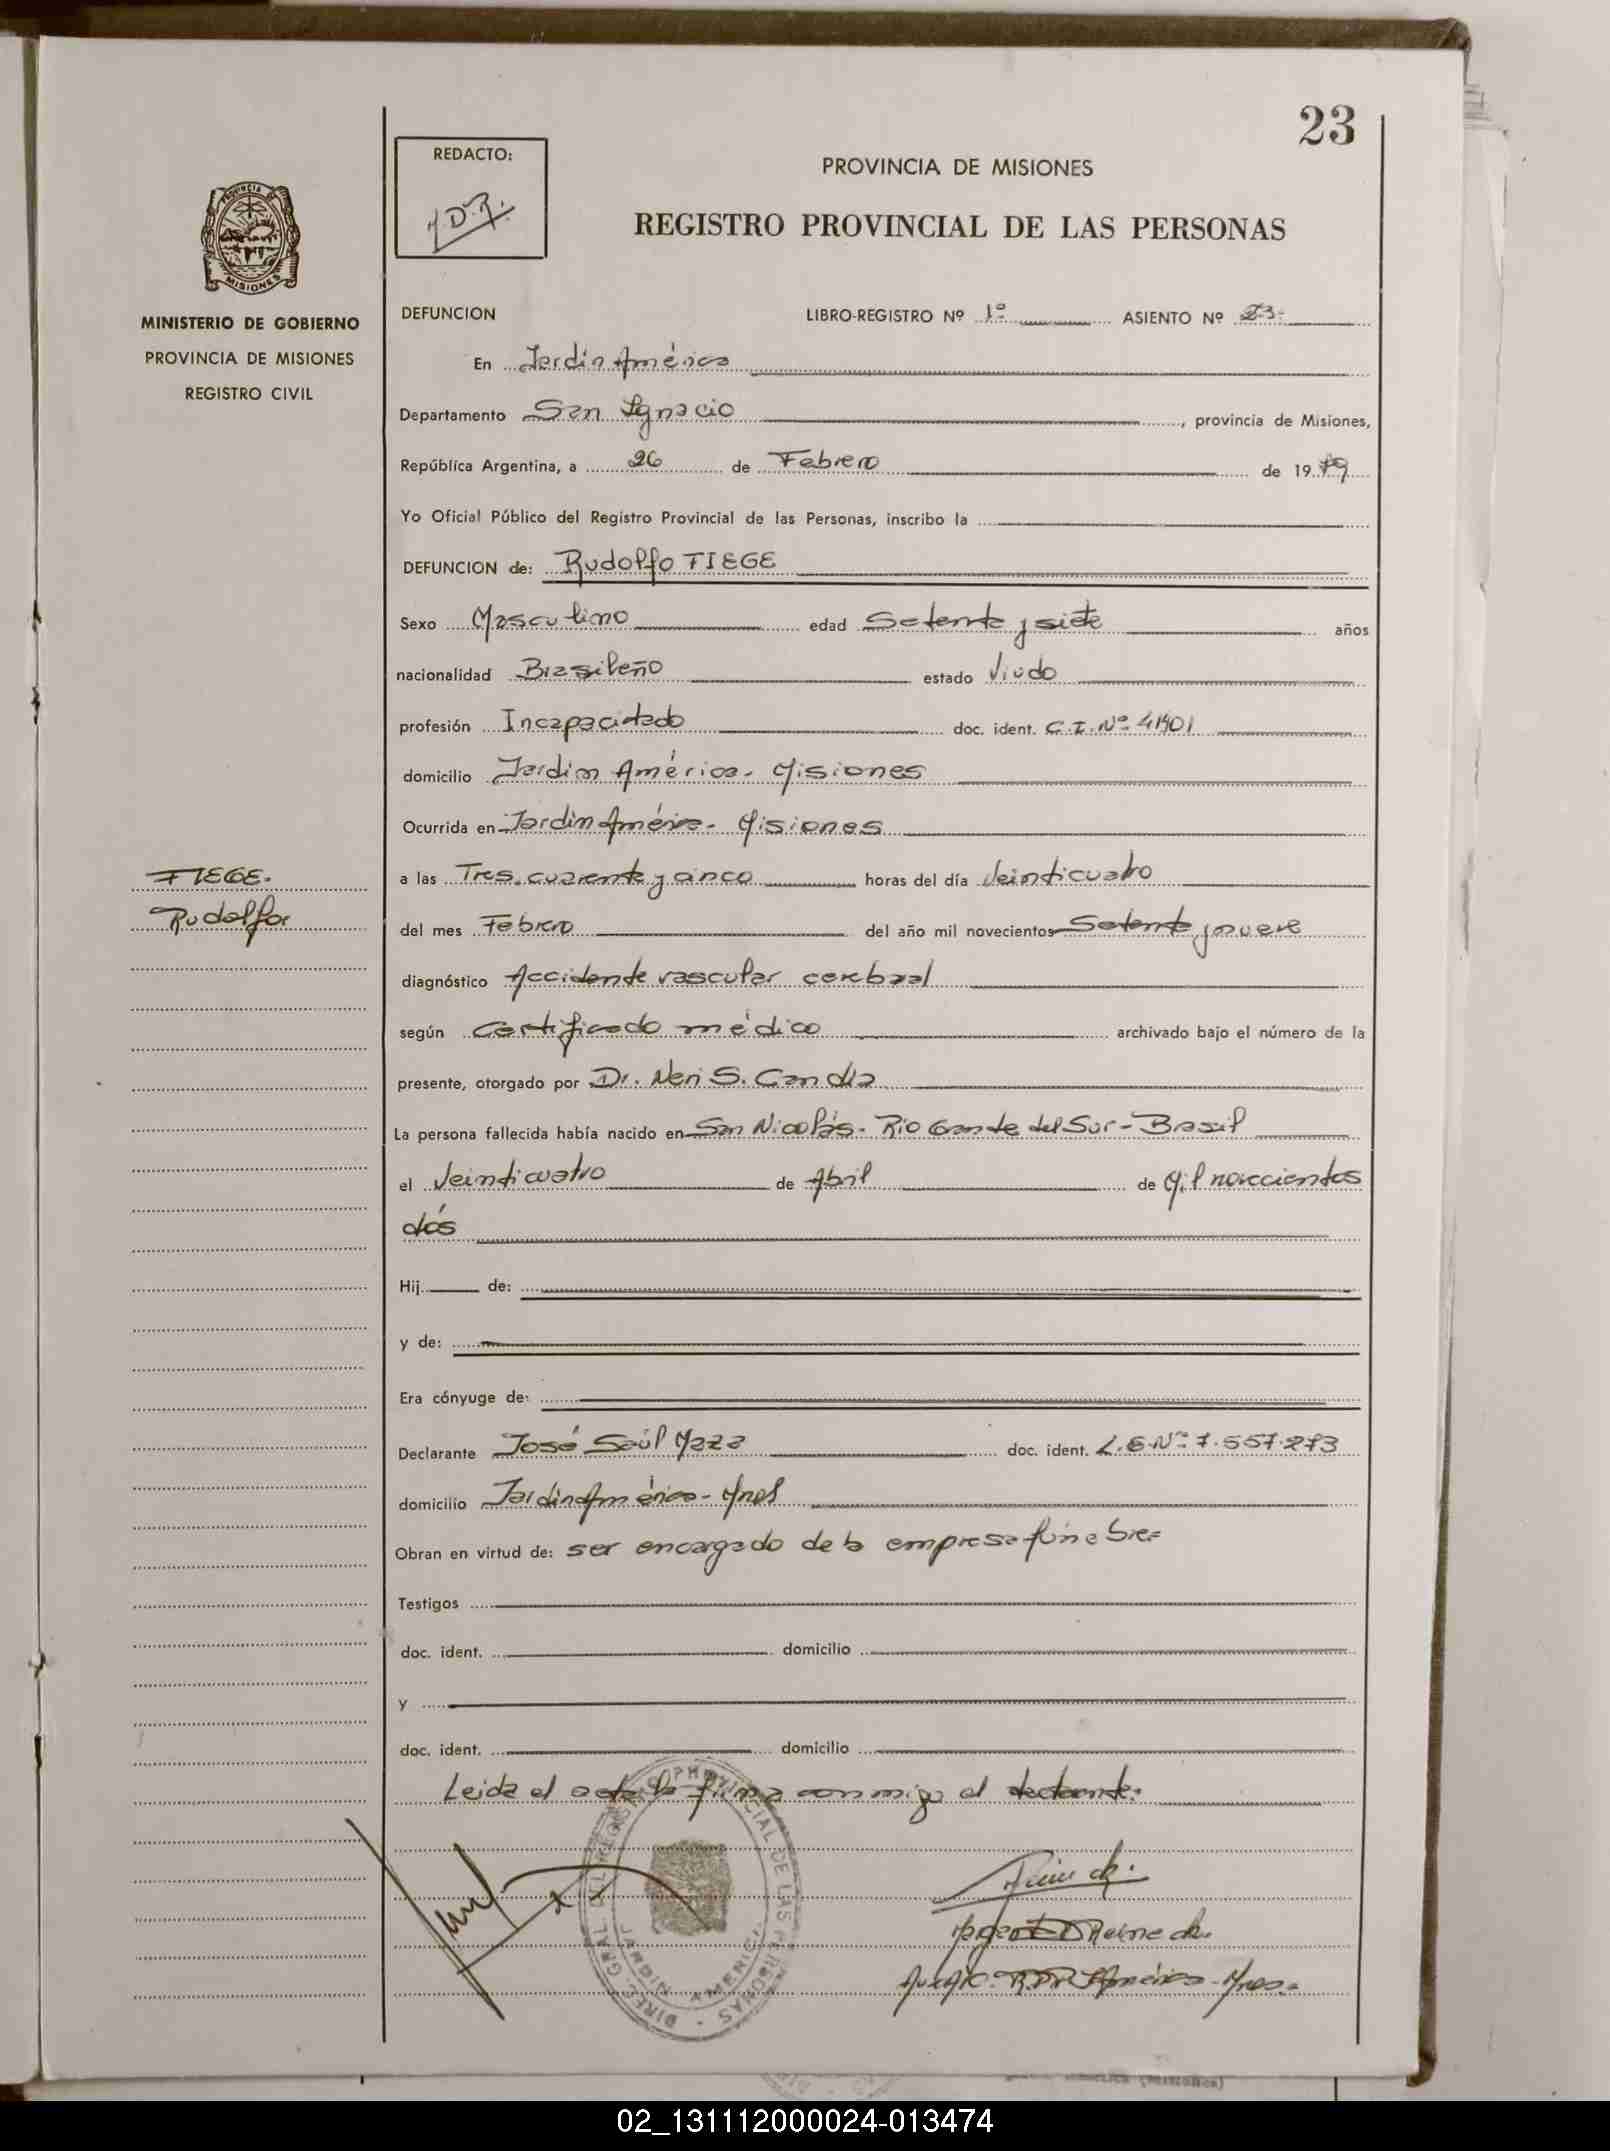 23
REDACTO:
PROVINCIA DE MISIONES
REGISTRO PROVINCIAL DE LAS PERSONAS
PROVINCIA DE
MISIONES
MINISTERIO DE GOBIERNO
PROVINCIA DE MISIONES
REGISTRO CIVIL
DEFUNCION LIBRO-REGISTRO Nº 1º ASIENTO Nº 23-
En Jardin América
Departamento San Ignacio, provincia de Misiones,
República Argentina, a 26 de Febrero de 1979
Yo Oficial Público del Registro Provincial de las Personas, inscribo la
DEFUNCION de: Rudolfo FIEGE
Sexo Masculino edad Setenta y siete años
nacionalidad Brasileño estado Viudo
profesión Incapacitado doc. ident. C.I. Nº
domicilio Jardin América. Misiones
Ocurrida en Jardin América- Misiones
FIEGE.
Rudolfo
a las Tres. cuarenta y cinco horas del día Veinticuatro
del mes Febrero del año mil novecientos Setenta y nueve
diagnóstico Accidente vascular cerebral
según Certificado médico archivado bajo el número de la
presente, otorgado por Dr. Neri S. Candia
La persona fallecida había nacido en San Nicolás- Rio Grande del Sur- Brasil
el Veinticuatro de Abril de Mil novecientos
dós
Hij de:
y de:
Era cónyuge de:
Declarante José Saúl Maza doc. ident. L.E.Nº 7.557.273
domicilio Jardin América- Mnes
Obran en virtud de: ser encargado de la empresa fúnebre=
Testigos
doc. ident. domicilio
y
doc. ident. domicilio
Leida el acta la firma conmigo el declarante.
DIREC. GRAL. DEL REGISTRO PROVINCIAL DE LAS PERSONAS
JARDIN AMERICA
02_131112000024-013474